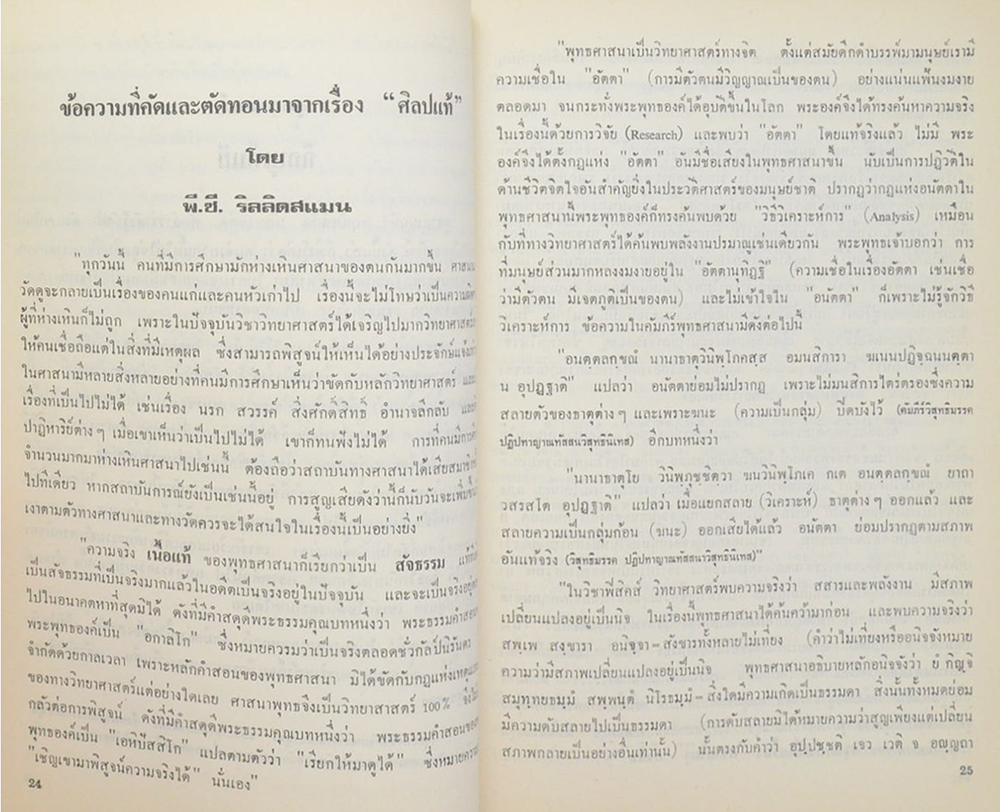 ข้อความที่คัดและตัดทอนมาจากเรื่อง “ศิลปแท้”
โดย
พี.ซี. ริลลิตสแมน
"ทุกวันนี้ คนที่มีการศึกษามักห่างเหินศาสนาของตนกันมากขึ้น
วัดดูจะกลายเป็นเรื่องของคนแก่และคนหัวเก่าไป เรื่องนี้จะไม่โทษว่าเป็นความผิด
ผู้ที่ห่างเหินก็ไม่ถูก เพราะในปัจจุบันวิชาวิทยาศาสตร์ได้เจริญไปมากวิทยาศาสตร์
ให้คนเชื่อถือแต่ในสิ่งที่มีเหตุผล ซึ่งสามารถพิสูจน์ให้เห็นได้อย่างประจักษ์
ในศาสนามีหลายสิ่งหลายอย่างที่คนมีการศึกษาเห็นว่าขัดกับหลักวิทยาศาสตร์
เรื่องที่เป็นไปไม่ได้ เช่นเรื่อง นรก สวรรค์ สิ่งศักดิ์สิทธิ์ อำนาจลึกลับ
ปาฏิหาริย์ต่างๆ เมื่อเขาเห็นว่าเป็นไปไม่ได้ เขาก็ทนฟังไม่ได้ การที่คนมีการ
จำนวนมากมาห่างเหินศาสนาไปเช่นนี้ ต้องถือว่าสถาบันทางศาสนาได้เสียสมาชิก
ไปทีเดียว หากสถาบันการณ์ยังเป็นเช่นนี้อยู่ การสูญเสียดังว่านี้ก็นับวันจะเพิ่มขึ้น
เงาตามตัวทางศาสนาและทางวัดควรจะได้สนใจในเรื่องนี้เป็นอย่างยิ่ง"
"ความจริง เนื้อแท้ ของพุทธศาสนาก็เรียกว่าเป็น สัจธรรม
เป็นสัจธรรมที่เป็นจริงมากแล้วในอดีตเป็นจริงอยู่ในปัจจุบัน และจะเป็นจริงอยู่
ไปในอนาคตหาที่สุดมิได้ ดังที่มีคำสดุดีพระธรรมคุณบทหนึ่งว่า พระธรรมคำสอน
พระพุทธองค์เป็น "อกาลิโก" ซึ่งหมายควรมว่าเป็นจริงตลอดชั่วกัลป์นิรันดร
จำกัดด้วยกาลเวลา เพราะหลักคำสอนของพุทธศาสนา มิได้ขัดกับกฎแห่งเหตุผล
ของทางวิทยาศาสตร์แต่อย่างใดเลย ศาสนาพุทธจึงเป็นวิทยาสาสตร์ 100% จึงไม่
กลัวต่อการพิสูจน์ ดังที่มีคำสดุดีพระธรรมคุณบทหนึ่งว่า พระธรรมคำสอนของ
พุทธองค์เป็น "เอหิปัสสิโก" แปลตามตัวว่า "เรียกให้มาดูได้" ซึ่งหมายความ
"เชิญเขามาพิสูจน์ความจริงได้" นั่นเอง"
24
"พุทธศาสนาเป็นวิทยาศาสตร์ทางจิต ตั้งแต่สมัยดึกดำบรรพ์มามนุษย์เรามี
ความเชื่อใน "อัตตา" (การมีตัวตนมีวิญญาณเป็นของตน) อย่างแน่นแฟ้นงมงาย
ตลอดมา จนกระทั่งพระพุทธองค์ได้อุบัติขึ้นในโลก พระองค์จึงได้ทรงค้นหาความจริง
ในเรื่องนี้ด้วยการวิจัย (Research) และพบว่า "อัตตา" โดยแท้จริงแล้ว ไม่มี พระ
องค์จึงได้ตั้งกฎแห่ง "อัตตา" อันมีชื่อเสียงในพุทธศาสนาขึ้น นับเป็นการปฏิวัติใน
ด้านชีวิตจิตใจอันสำคัญยิ่งในประวัติศาสตร์ของมนุษย์ชาติ ปรากฏว่ากฎแห่งอนัตตาใน
พุทธศาสนานี้พระพุทธองค์ก็ทรงค้นพบด้วย "วิธีวิเคราะห์การ" (Analysis) เหมือน
กับที่ทางวิทยาศาสตร์ได้ค้นพบพลังงานปรมาณูเช่นเดียวกัน พระพุทธเจ้าบอกว่า การ
ที่มนุษย์ส่วนมากหลงงมงายอยู่ใน "อัตตานุทิฏฐิ" (ความเชื่อในเรื่องอัตตา เช่นเชื่อ
ว่ามีตัวตน มีเจตภูติเป็นของตน) และไม่เข้าใจใน "อนัตตา" ก็เพราะไม่รู้จักวิธี
วิเคราะห์การ ข้อความในคัมภีร์พุทธศาสนามีดังต่อไปนี้
"อนตฺตลกฺขณํ นานาธาตุวินิพฺโภคสฺส อมนสิการา ฆเนนปฏิจฺฉนนตฺตา
น อุปฏฺฐาติ" แปลว่า อนัตตาย่อมไม่ปรากฏ เพราะไม่มนสิการไตร่ตรองซึ่งความ
สลายตัวของธาตุต่างๆ และเพราะฆนะ (ความเป็นกลุ่ม) ปิดบังไว้ (คัมภีร์วิสุทธิมรรค
ปฏิปทาญาณทัสสนวิสุทธินิเทส) อีกบทหนึ่งว่า
"นานาธาตุโย วินิพฺภุชฺชิตฺวา ฆนวินิพฺโภเค กเต อนตฺตลกฺขณํ ยาถา
วสรสโต อุปฏฺฐาติ" แปลว่า เมื่อแยกสลาย (วิเคราะห์) ธาตุต่างๆ ออกแล้ว และ
สลายความเป็นกลุ่มก้อน (ฆนะ) ออกเสียได้แล้ว อนัตตา ย่อมปรากฏตามสภาพ
อันแท้จริง (วิสุทธิมรรค ปฏิปทาญาณทัสสนาวิสุทธินิเทส)"
"ในวิชาฟิสิคส์ วิทยาศาสตร์พบความจริงว่า สสารและพลังงาน มีสภาพ
เปลี่ยนแปลงอยู่เป็นนิจ ในเรื่องนี้พุทธศาสนาได้ค้นคว้ามาก่อน และพบความจริงว่า
สพฺเพ สงฺขารา อนิจฺจา = สังขารทั้งหลายไม่เที่ยง (คำว่าไม่เที่ยงหรืออนิจจังหมาย
ความว่ามีสภาพเปลี่ยนแปลงอยู่เป็นนิจ พุทธศาสนาอธิบายหลักอนิจจังว่า ยํ กิญฺจิ
สมุทฺทยธมฺมํ สพฺพนฺตํ นิโรธมฺมํ = สิ่งใดมีความเกิดเป็นธรรมดา สิ่งนั้นทั้งหมดย่อม
มีความดับสลายไปเป็นธรรมดา (การดับสลายมิได้หมายความว่าสูญเพียงแต่เปลี่ยน
สภาพกลายเป็นอย่างอื่นเท่านั้น) นั้นตรงกับคำว่า อุปฺปชฺชติ เจว เวติ จ อญฺญถา
25